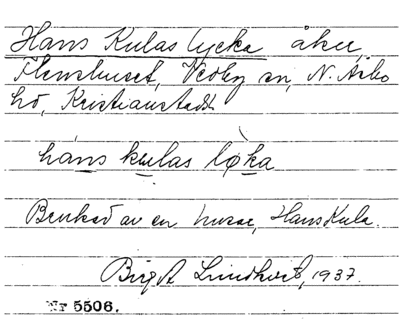 Hans Kulas lycka åker,
Stenshuset, Vedby sn, N. Åsbo
hd, Kristianstads
háns kulas lø̀ka
av en husar, Hans Kula.
Birgit Lundkvist, 1937.
Nr 5506.